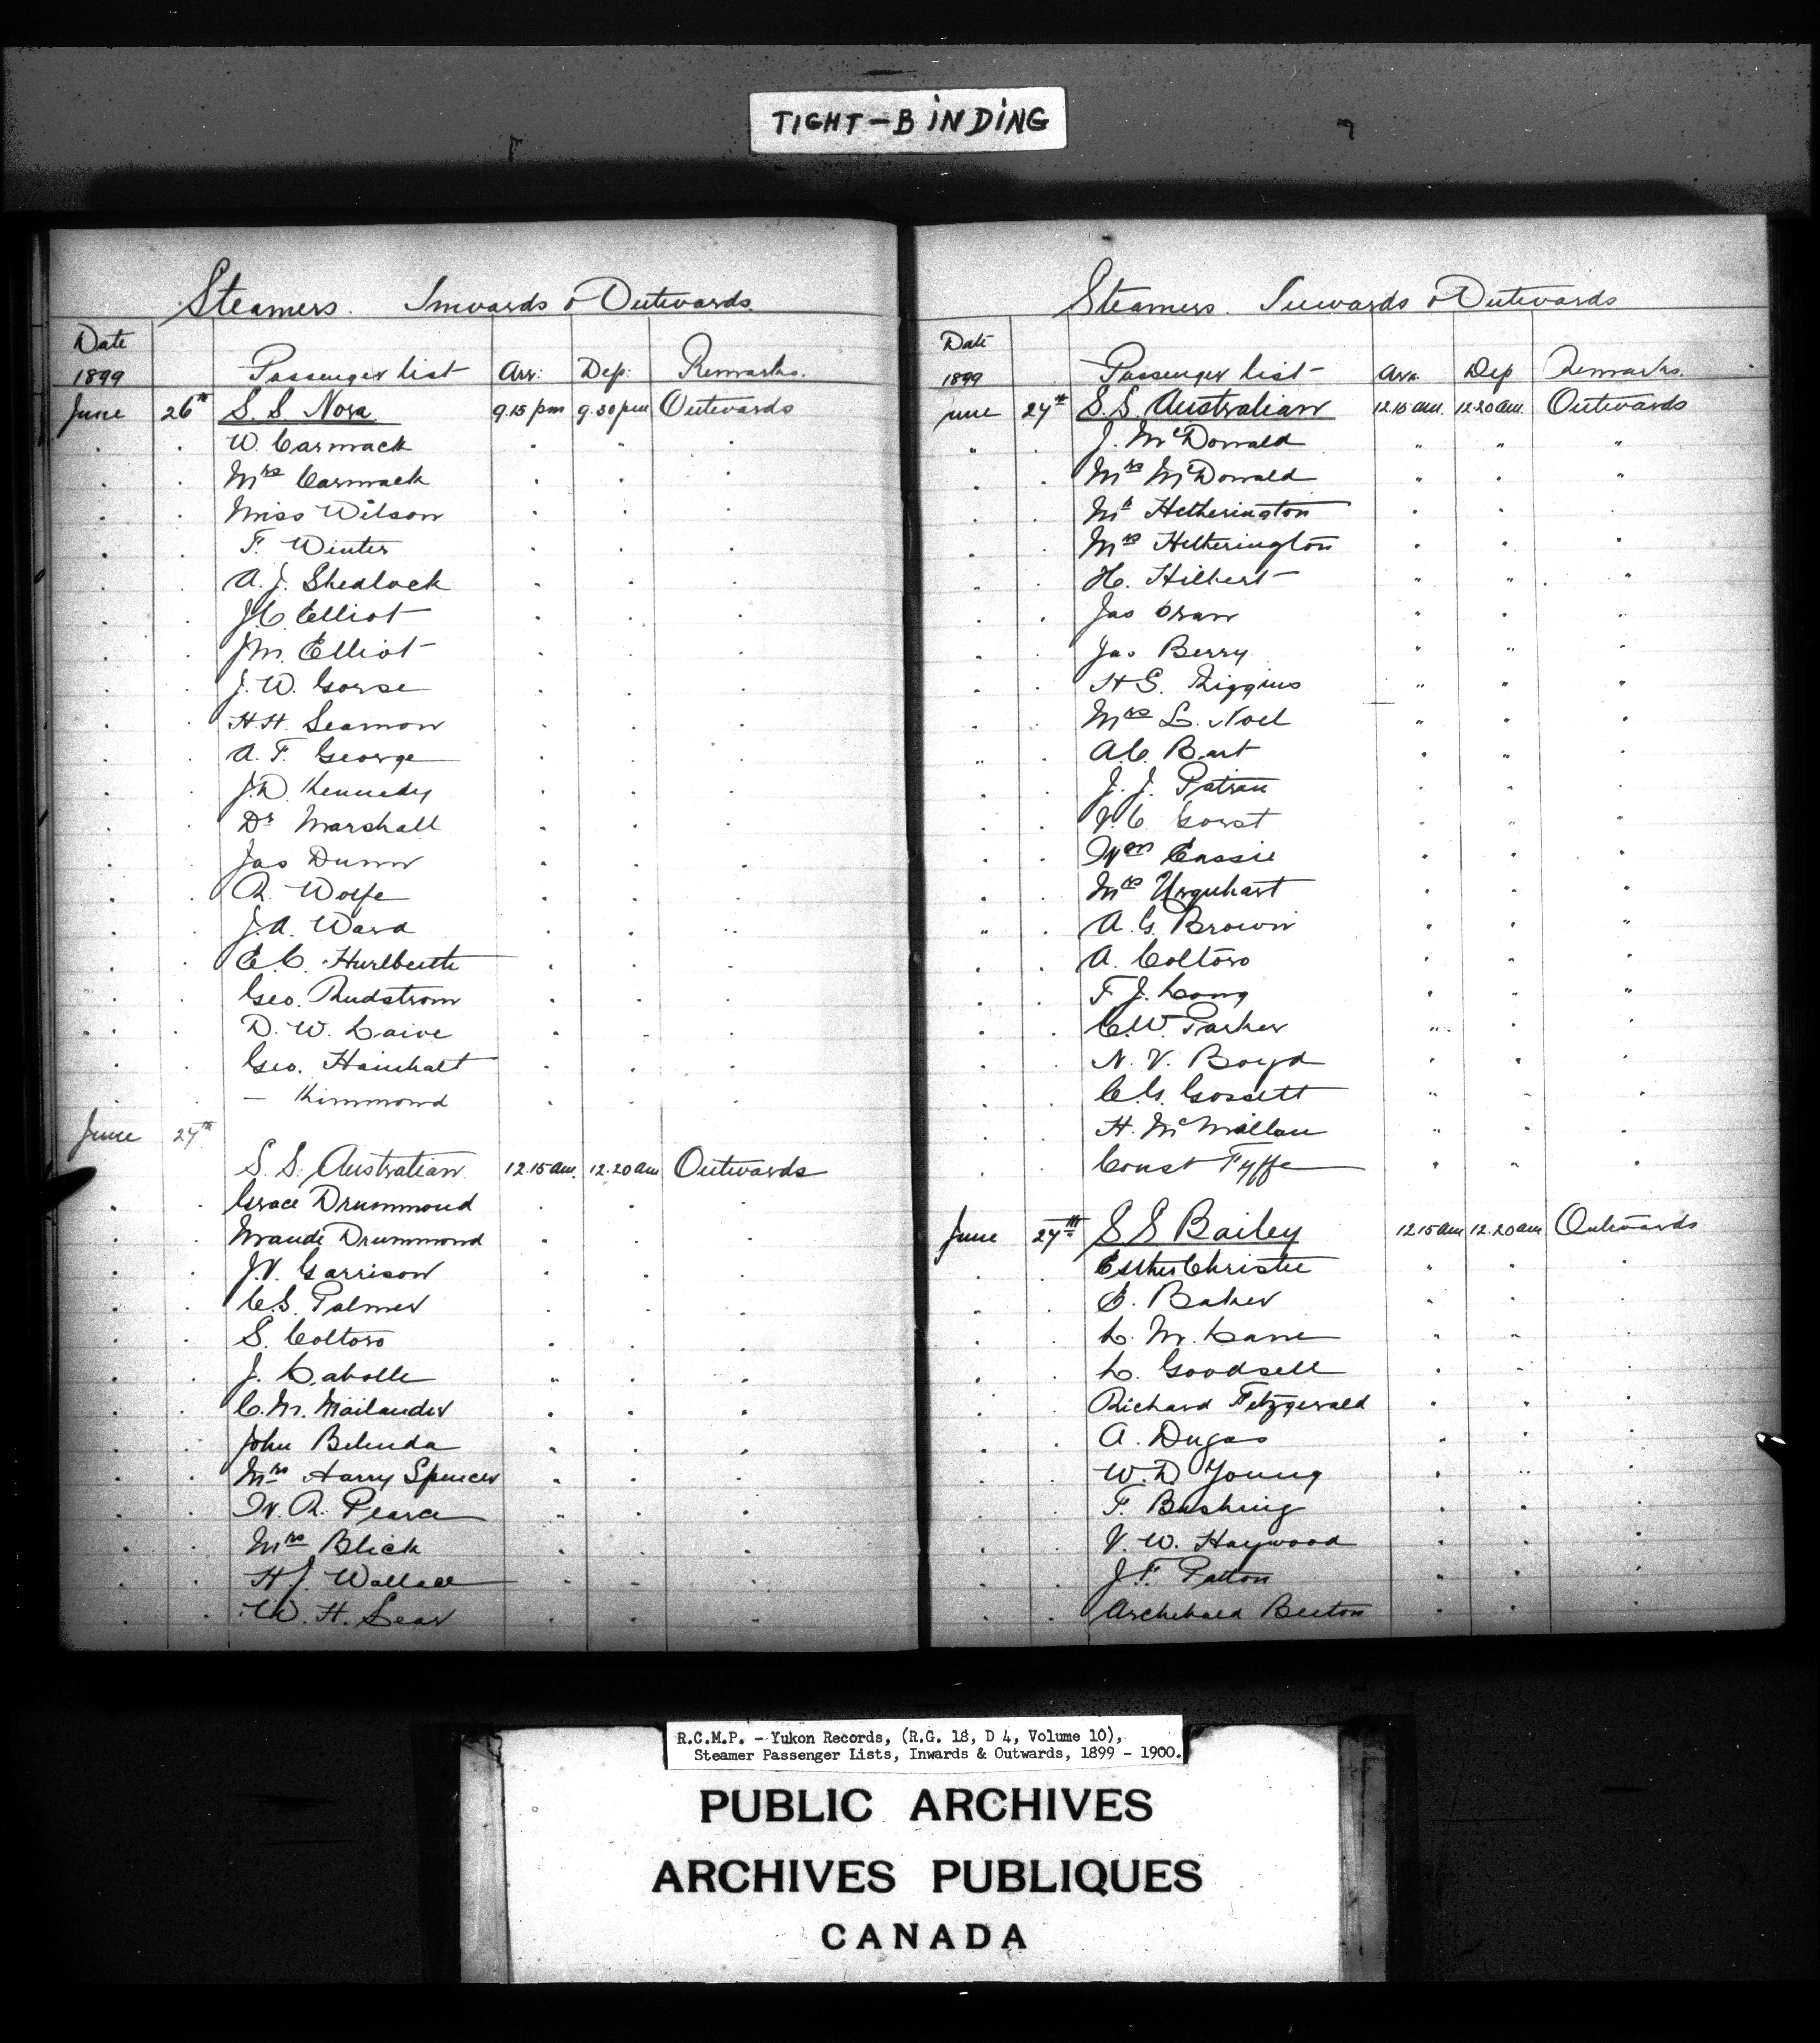 TIGHT-BINDING
Steamers. Inwards & Outwards.
Date
1899 Passenger list Arr: Dep: Remarks.
June 26th S. S Nora 9.15 pm 9.30 pm Outwards
W. Carmack
Mrs Carmack
Miss Wilson
F. Winter
A. J. Shedlock
J. C. Elliot
J. M. Elliot
J. W. Gorse
H. H. Seamon
A. F. George
J. D. Kennedy
Dr Marshall
Jas Dunn
R. Wolfe
J. A. Ward
E. C.
Geo. Rudstrom
D. W.
Geo.
— Kimmond
June 27th
S. S. Australian 12.15 am. 12.20 am Outwards
Grace Drummond
Maude Drummond
J. V. Garrison
C. S. Palmer
S. Coltoro
J. Labolle
C. M. Mailander
John Belinda
Mrs Harry Spencer
W. R. Pearce
Mrs Blick
H J. Wallace
W. H. Sear
Steamers. Inwards & Outwards
Date
1899 Passenger list Arr. Dep Remarks.
June 27th S. S. Australian 12.15 am. 12.20 am. Outwards
J. McDonald
Mrs McDonald
Mr Hetherington
Mrs Hetherington
H. Hilbert
Jas Oran
Jas Berry
H S. Riggins
Mrs L. Noel
A. C. Bart
J. J.
J. C. Gorst
Wm Cassie
Mrs Urquhart
A. G. Brown
A. Coltoro
F J. Long
C. W. Parker
N. V. Boyd
C. G. Gossett
H. McMillan
Const Fyffe
June 27th S S Bailey 12.15 am 12.20 am Outwards
Esther Christie
E. Baker
L. M. Lane
L. Goodsell
Richard Fitzgerald
A. Dugas
W. D Young
F. Bushing
V. W. Haywood
J F. Patton
Archibald Beeton
R.C.M.P. - Yukon Records, (R.G. 18, D 4, Volume 10),
Steamer Passenger Lists, Inwards & Outwards, 1899 - 1900.
PUBLIC ARCHIVES
ARCHIVES PUBLIQUES
CANADA